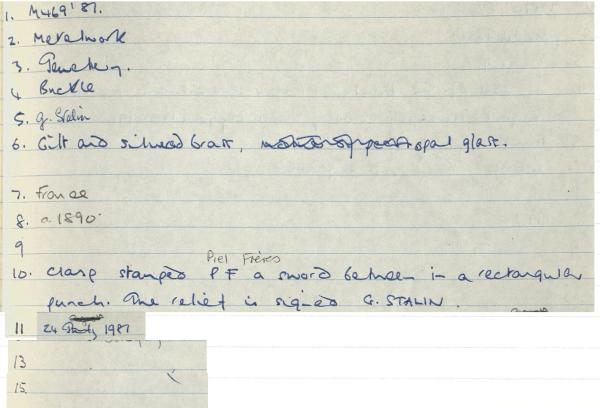 1. M469'87.
2. Metalwork
3. Jewellery.
4 Buckle
5. G. Stalin
6. Gilt and silvered brass, opal glass.
7. France
8. c. 1890
9
10. Clasp stamped P F a sword between in a rectangular
Piel Frères
punch. The relief is signed G. STALIN.
11 24 1987
13
15.